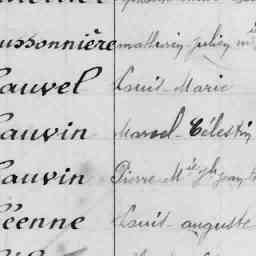 ussonnière mathurin julien
auvel Louis Marie
auvin Marcel Célestin
auvin Pierre M
éenne Louis auguste